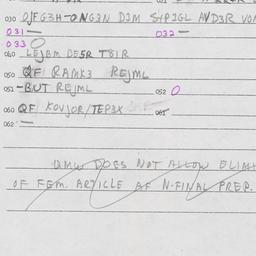 030 QFG3H-ONG3N DJM S4PJGL AVD3R VON
031 — 032 —
033 O
040 LEJBM DESR T8IR
050 QFI RAMK3 REJML
051 -BUT REJML 052 O
060 QF KOVJOR/TEP3X 061
062 —
QMW DOES NOT ALLOW ELIM
OF FEM. ARTICLE AF N-FINAL PREP.